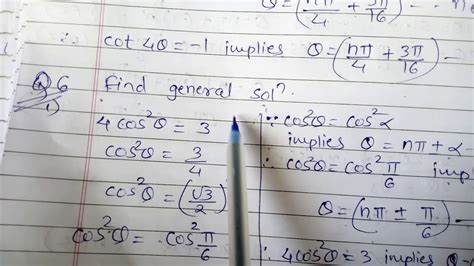 θ = (nπ/4 + 3π/16) --
∴ cot 4θ = -1 implies θ = (nπ/4 + 3π/16) -
Q6 Find general solⁿ.
1)
4cos²θ = 3
cos²θ = 3/4
cos²θ = (√3/2)
cos²θ = cos²π/6
∵ cos²θ = cos²α
implies θ = nπ ± α -
∴ cos²θ = cos²π/6 imp
θ = (nπ ± π/6 -
∴ 4cos²θ = 3 implies